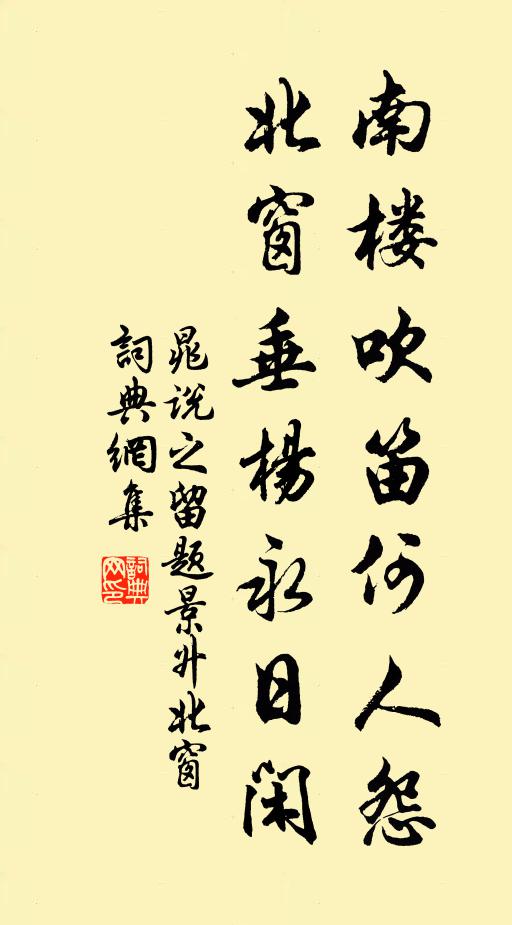 南楼吹笛何人怨
北窗垂楊永日闲
晁说之留题景升北窗
詞典網集
詞典网印